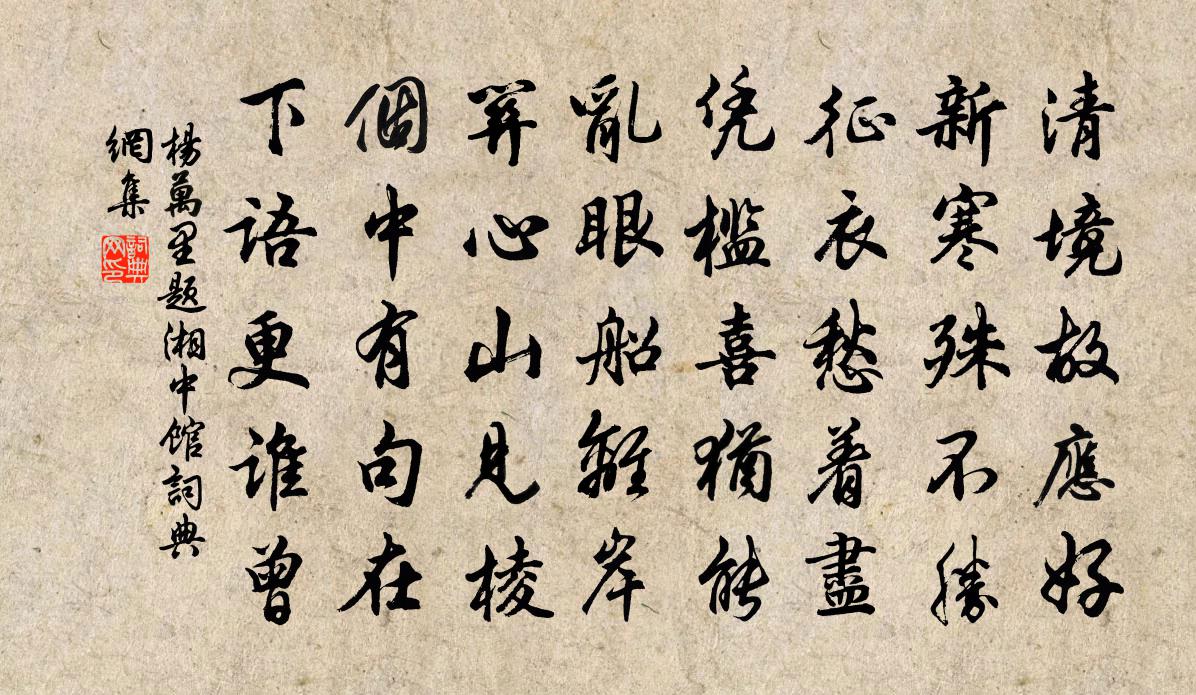 清境故應好
新寒殊不勝
征衣愁着盡
凭檻喜猶能
亂眼船離岸
羿心山見棱
個中有句在
下語更誰曾
楊萬里題湘中館詞典
網集
詞典網印